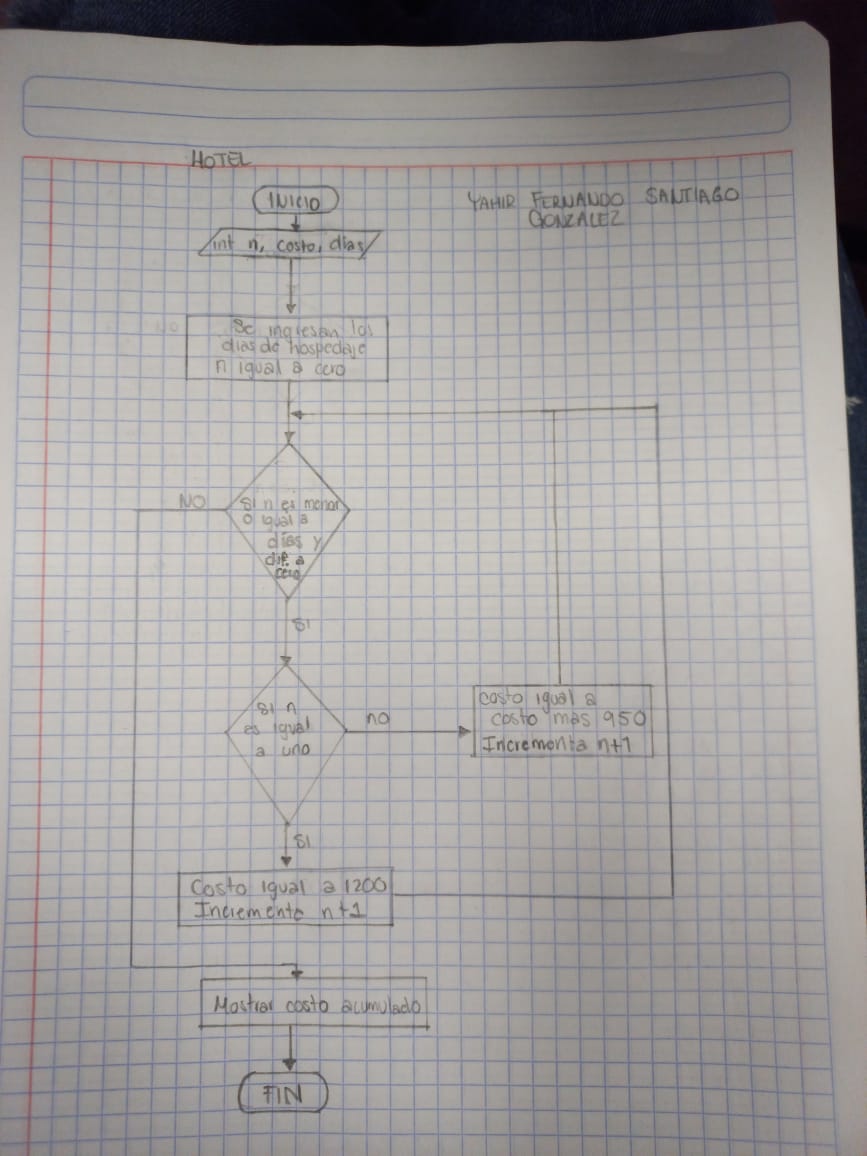 HOTEL
INICIO
YAHIR FERNANDO SANTIAGO
GONZALEZ
int n, costo, dias
Se ingresan los
dias de hospedaje
n igual a cero
NO
SI n es menor
o igual a
dias y
dif. a
cero
SI
SI n
es igual
a uno
no
costo igual a
costo mas 950
Incrementa n+1
SI
Costo igual a 1200
Incremento n+1
Mostrar costo acumulado
FIN